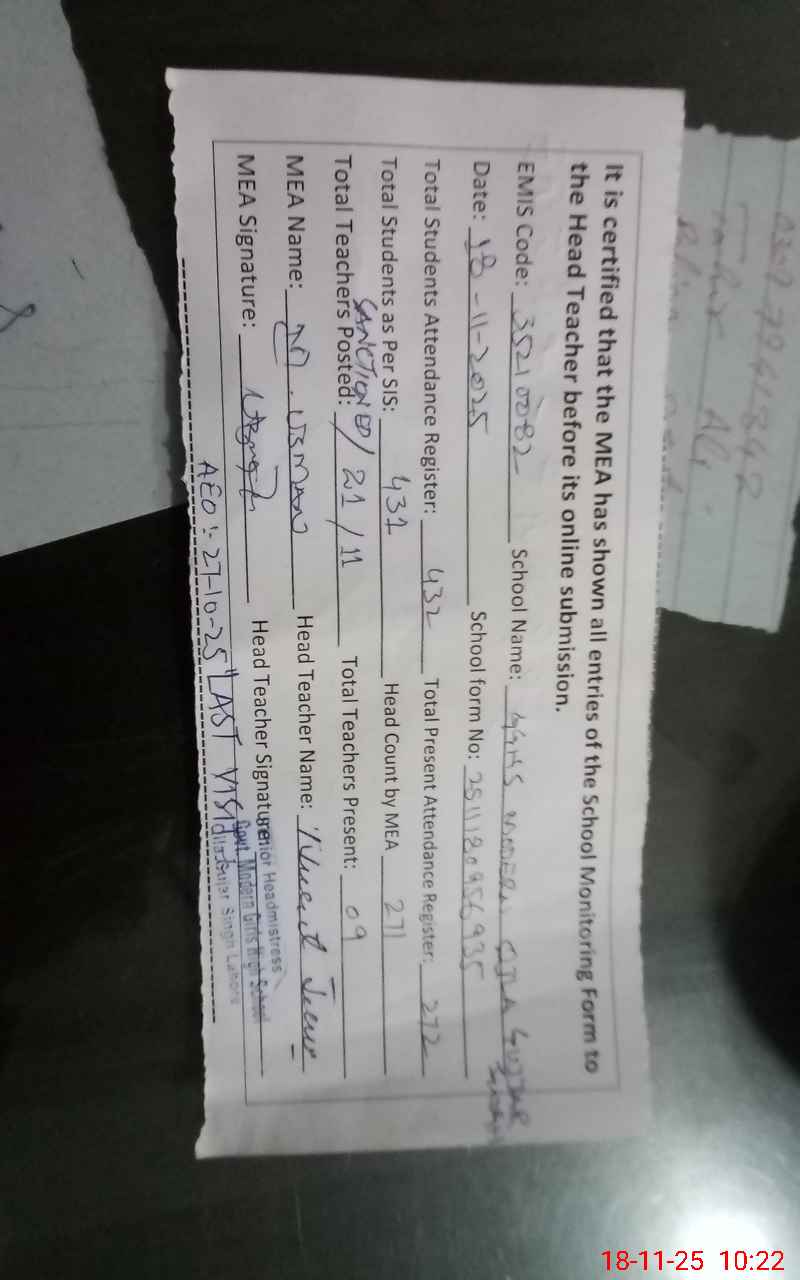 It is certified that the MEA has shown all entries of the School Monitoring Form to
the Head Teacher before its online submission.
EMIS Code: 35210082 School Name: GGHS MODERN QILA GUJJAR SINGH
Date: 18-11-2025 School form No:
Total Students Attendance Register: 432 Total Present Attendance Register: 272
Total Students as Per SIS: 431 Head Count by MEA 271
SANCTIONED/
Total Teachers Posted: 21/11 Total Teachers Present: 09
MEA Name: M. USMAN Head Teacher Name:
MEA Signature: Head Teacher Signature:
Senior Headmistress
Govt. Modern Girls High School
Qila Gujar Singh Lahore
AEO:- 27-10-25 LAST VISIT
18-11-25 10:22